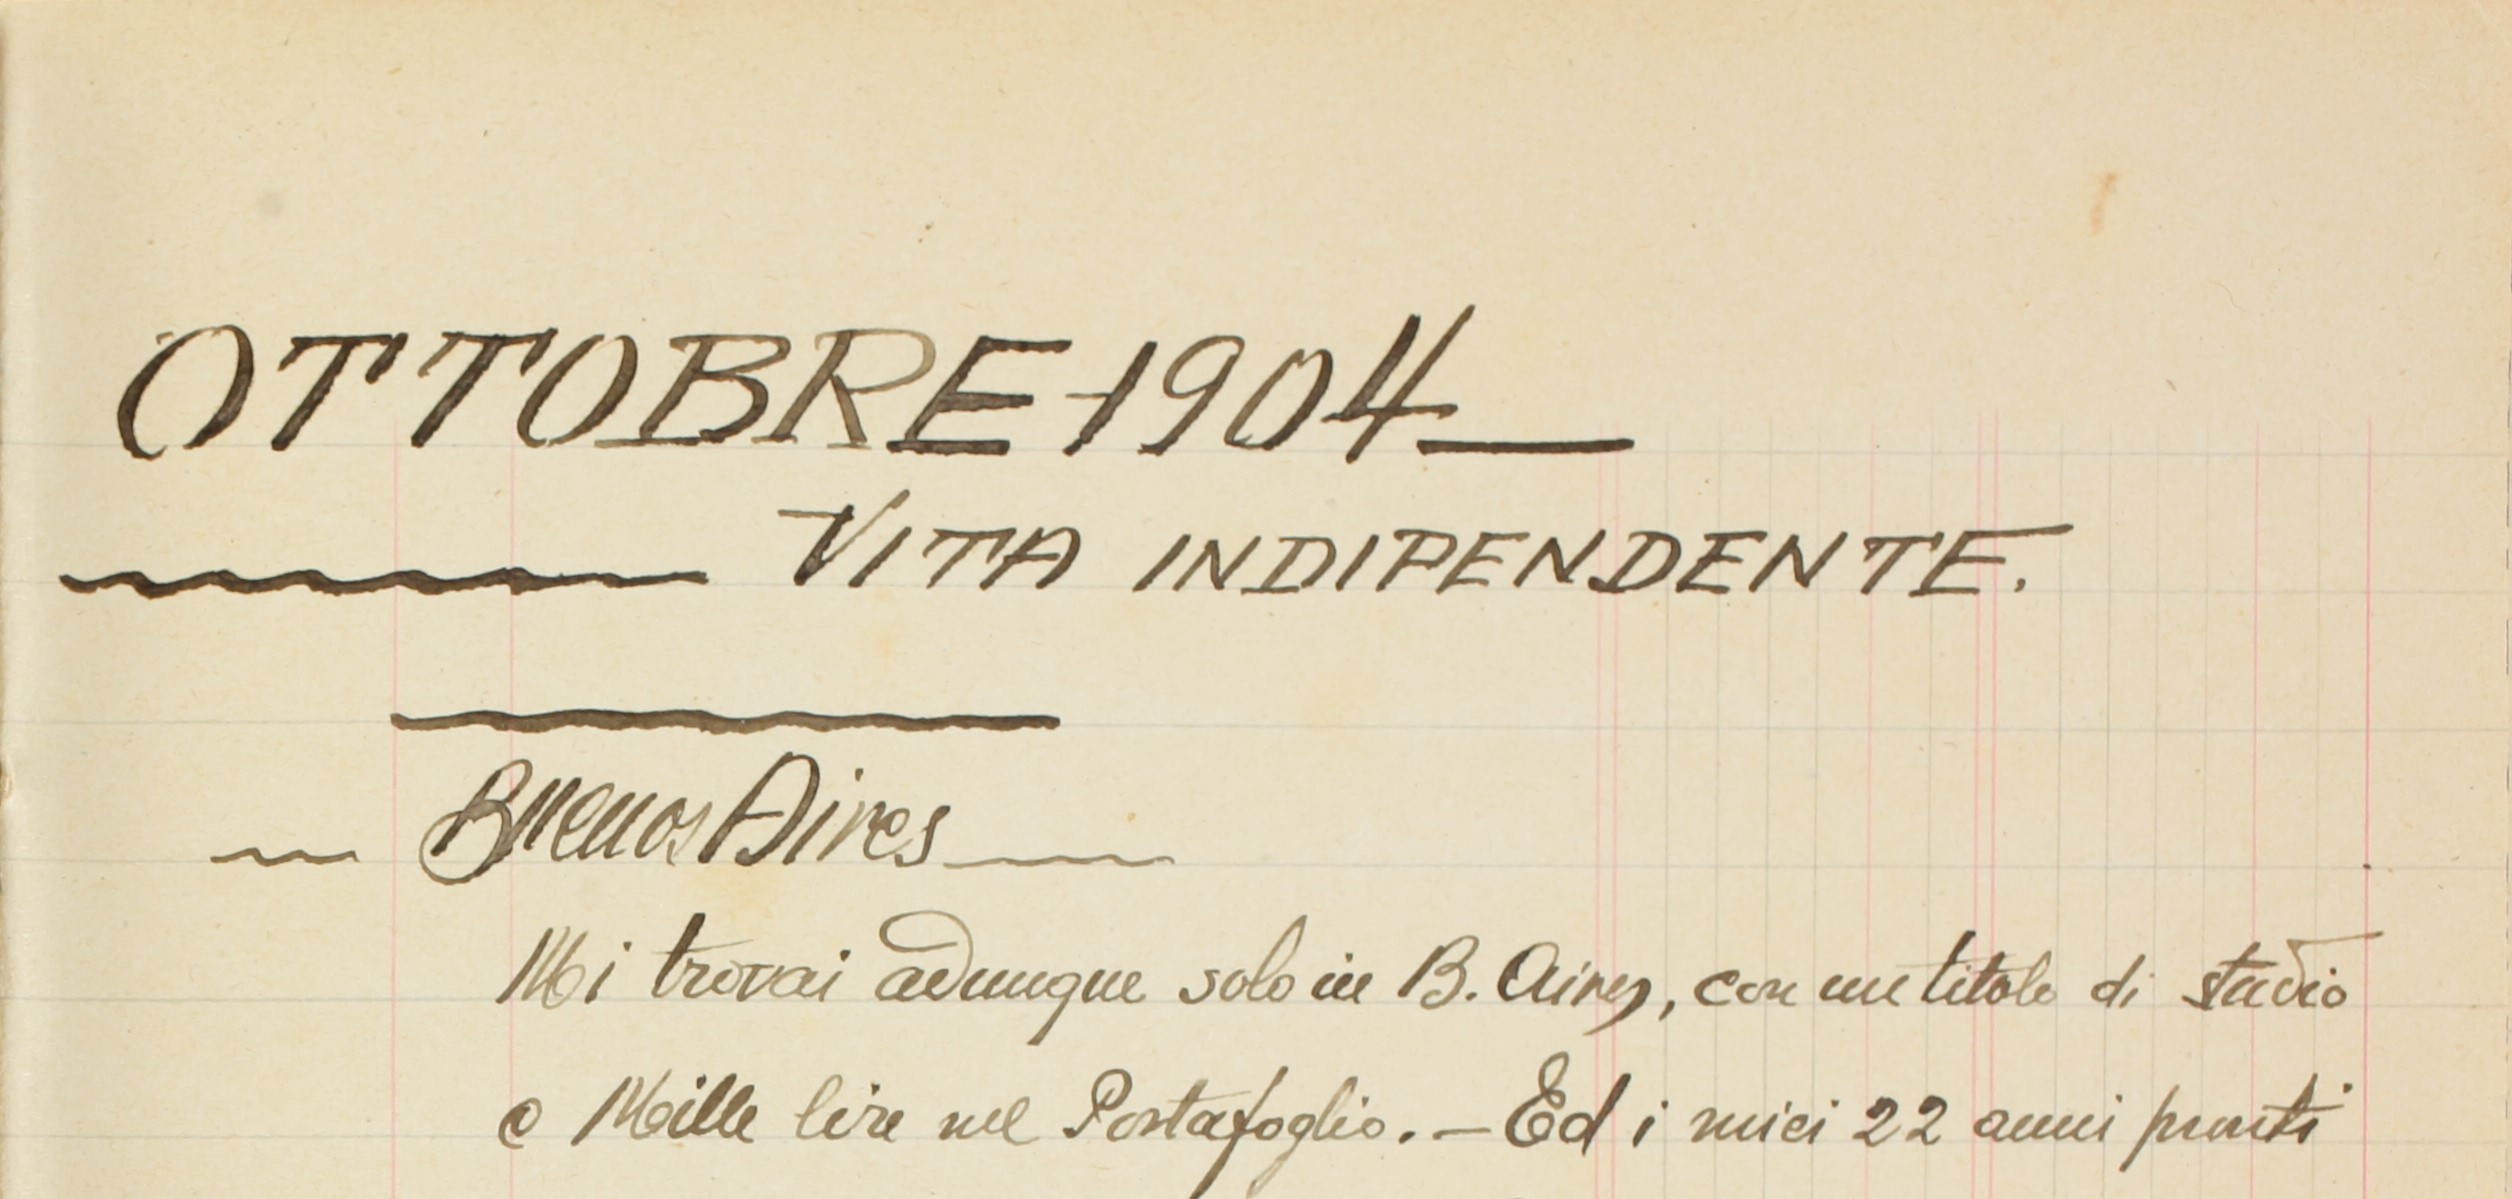 OTTOBRE-1904
VITA INDIPENDENTE.
Buenos Aires
Mi trovai adunque solo in B. Aires, con un titolo di studio
e Mille lire nel Portafoglio. – Ed i miei 22 anni pronti